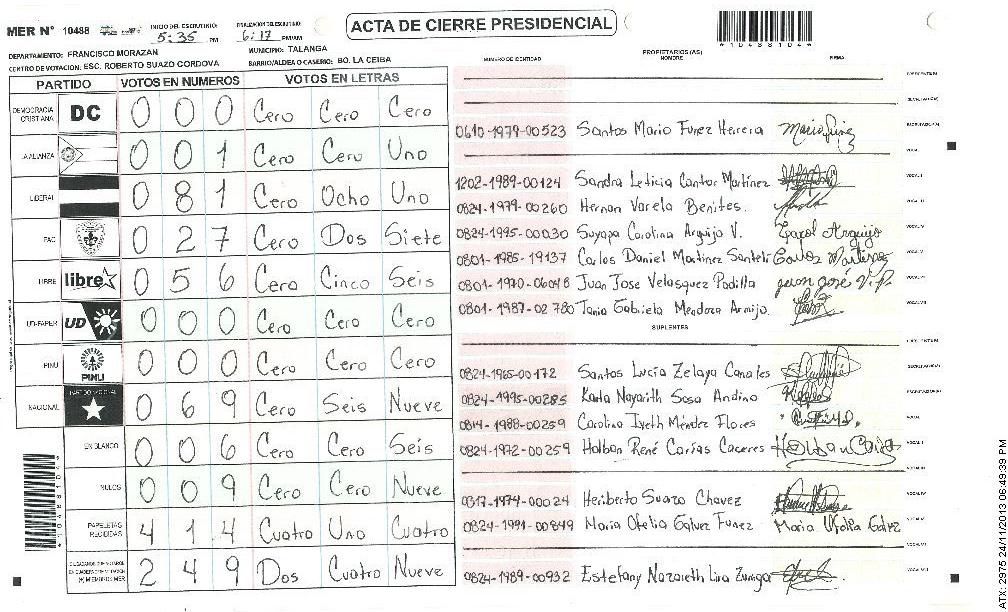 MER N° 10488 INICIO DEL ESCRUTINIO: 5:35 PM FINALIZACION DEL ESCRUTINIO: 6:17 PM/AM
ACTA DE CIERRE PRESIDENCIAL
*1048810 4*
DEPARTAMENTO: FRANCISCO MORAZAN MUNICIPIO: TALANGA
CENTRO DE VOTACION: ESC. ROBERTO SUAZO CORDOVA BARRIO/ALDEA O CASERIO: BO. LA CEIBA
PARTIDO VOTOS EN NUMEROS VOTOS EN LETRAS
DEMOCRACIA CRISTIANA DC 0 0 0 Cero Cero Cero
LA ALIANZA 0 0 1 Cero Cero Uno
LIBERAL 0 8 1 Cero Ocho Uno
PAC 0 2 7 Cero Dos Siete
LIBRE libre 0 5 6 Cero Cinco Seis
UD-FAPER UD 0 0 0 Cero Cero Cero
PINU PINU 0 0 0 Cero Cero Cero
NACIONAL PARTIDO NACIONAL 0 6 9 Cero Seis Nueve
EN BLANCO 0 0 6 Cero Cero Seis
NULOS 0 0 9 Cero Cero Nueve
PAPELETAS RECIBIDAS 4 1 4 Cuatro Uno Cuatro
CIUDADANOS QUE VOTARON (+) MIEMBROS MER 2 4 9 Dos Cuatro Nueve
NUMERO DE IDENTIDAD PROPIETARIOS (AS) NOMBRE FIRMA
PRESIDENTE(A)
SECRETARIO(A)
0610-1979-00523 Santos Mario Funez Herrera ESCRUTADOR(A)
VOCAL I
1202-1989-00124 Sandra Leticia Cantor Martínez
0824-1979-00260 Hernan Varela Benites.
0824-1995-00030 Suyapa Carolina Arguijo V. Carol Arguijo
0801-1985-19137 Carlos Daniel Martinez Santeli Carlos Martinez
0801-1970-06048 Juan Jose Velasquez Padilla juan josé V.P.
0801-1987-02780 Tania Gabriela Mendoza Armijo.
SUPLENTES
0824-1965-00172 Santos Lucía Zelaya Canales
0824-1995-00285 Karla Nayarith Sosa Andino
0814-1988-00259 Carolina Iveth Méndez Flores
0824-1972-00259 Holban René Carías Caceres Holban Carías
0317-1974-00024 Heriberto Suazo Chavez
0824-1991-00849 Maria Ofelia Galvez Funez Maria Ofelia Galvez
0824-1989-00932 Estefany Nazareth Lira Zuniga
ATX: 2975 24/11/2013 06:49:39 PM